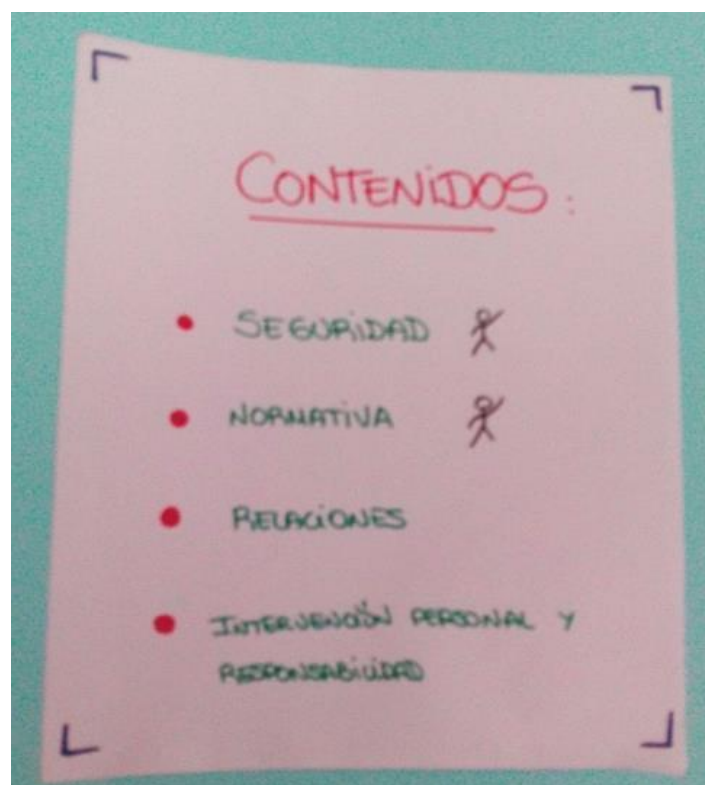 CONTENiDOS:
• SEGURiDAD
• NORMATiVA
• RELACiONES
• INTERVENCIÓN PERSONAL Y
RESPONSABiLiDAD